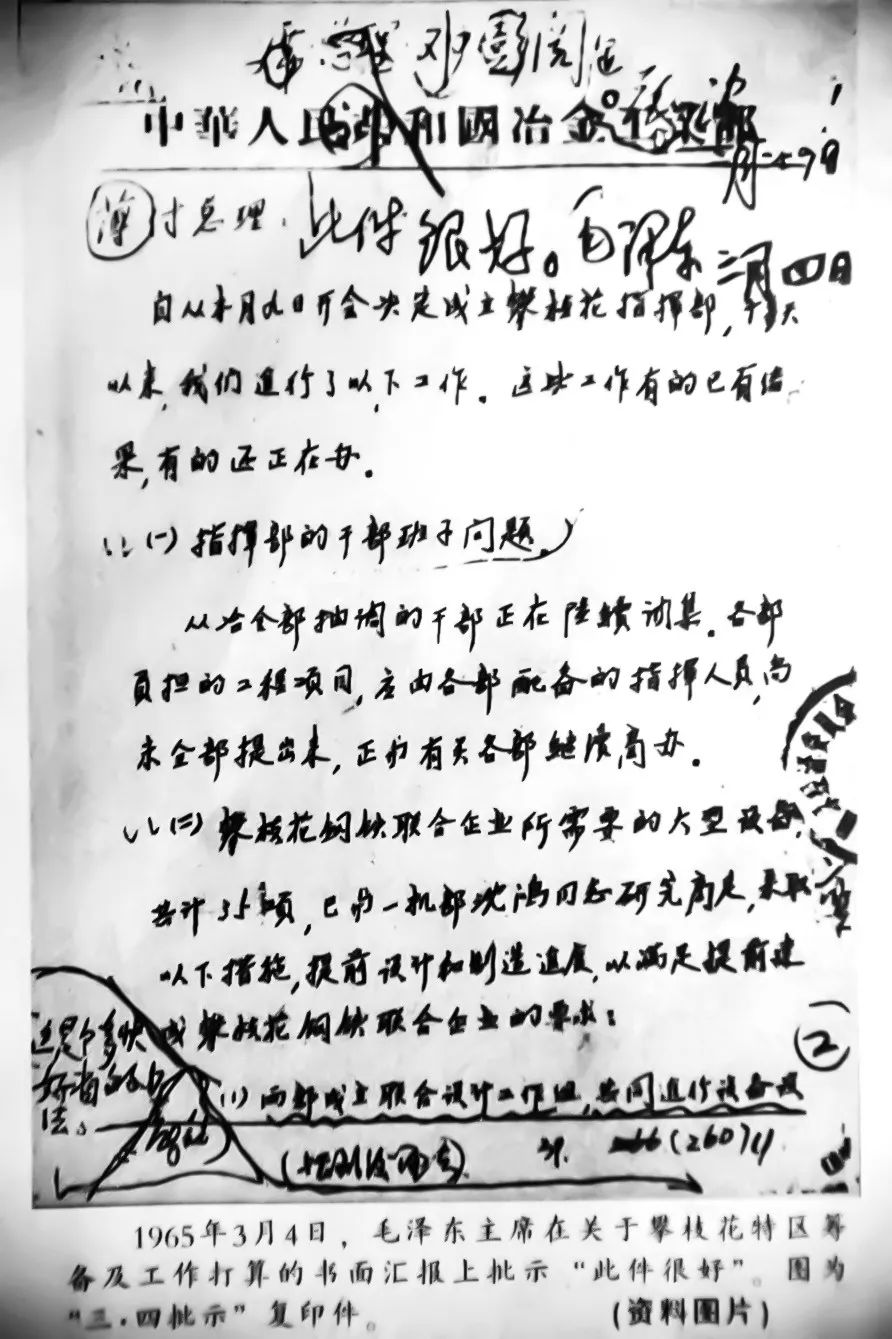 阅
中华人民共和国冶金
月二十九日
薄付总理:
此件很好。毛泽东 三月四日
自从本月九日开会决定成立攀枝花指挥部,十天
以来,我们进行了以下工作。这些工作有的已有结
果,有的还正在办。
(一)指挥部的干部班子问题。
从冶金部抽调的干部正在陆续调集。各部
负担的工程项目,应由各部配备的指挥人员,尚
未全部提出来,正与有关各部继续商办。
(二)攀枝花钢铁联合企业所需要的大型设备,
共计35项,已与一机部沈鸿同志研究商定,采取
以下措施,提前设计和制造进度,以满足提前建
成攀枝花钢铁联合企业的要求:
这是个多快
好省的办
法。
②
(1)两部成立联合设计工作组,共同进行设备设
1965年3月4日,毛泽东主席在关于攀枝花特区筹
备及工作打算的书面汇报上批示“此件很好”。图为
“三·四批示”复印件。 (资料图片)